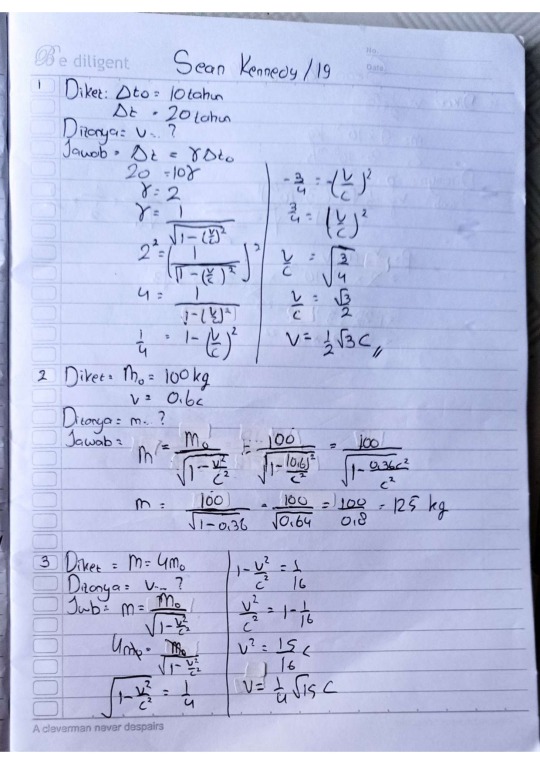 Be diligent
No
Date
Sean Kennedy/19
1 Diket: Δto = 10 tahun
Δt = 20 tahun
Ditanya = v... ?
Jawab = Δt = γΔto
20 = 10γ
γ = 2
γ = 1/√(1-(v/c)²)
2² = (1/√(1-(v/c)²))²
4 = 1/(1-(v/c)²)
1/4 = 1-(v/c)²
-3/4 = -(v/c)²
3/4 = (v/c)²
v/c = √(3/4)
v/c = √3/2
v = 1/2 √3 c //
2 Diket = mo = 100 kg
v = 0.6c
Ditanya = m.. ?
Jawab =
m = mo/√(1-v²/c²) = 100/√(1-(0,6)²/c²) = 100/√(1-0,36c²/c²)
m = 100/√(1-0,36) = 100/√0,64 = 100/0,8 = 125 kg
3 Diket = m = 4mo
Ditanya = v... ?
Jwb = m = mo/√(1-v²/c²)
4mo = mo/√(1-v²/c²)
√(1-v²/c²) = 1/4
1-v²/c² = 1/16
v²/c² = 1-1/16
v² = 15/16 c
v = 1/4 √15 c
A cleverman never despairs